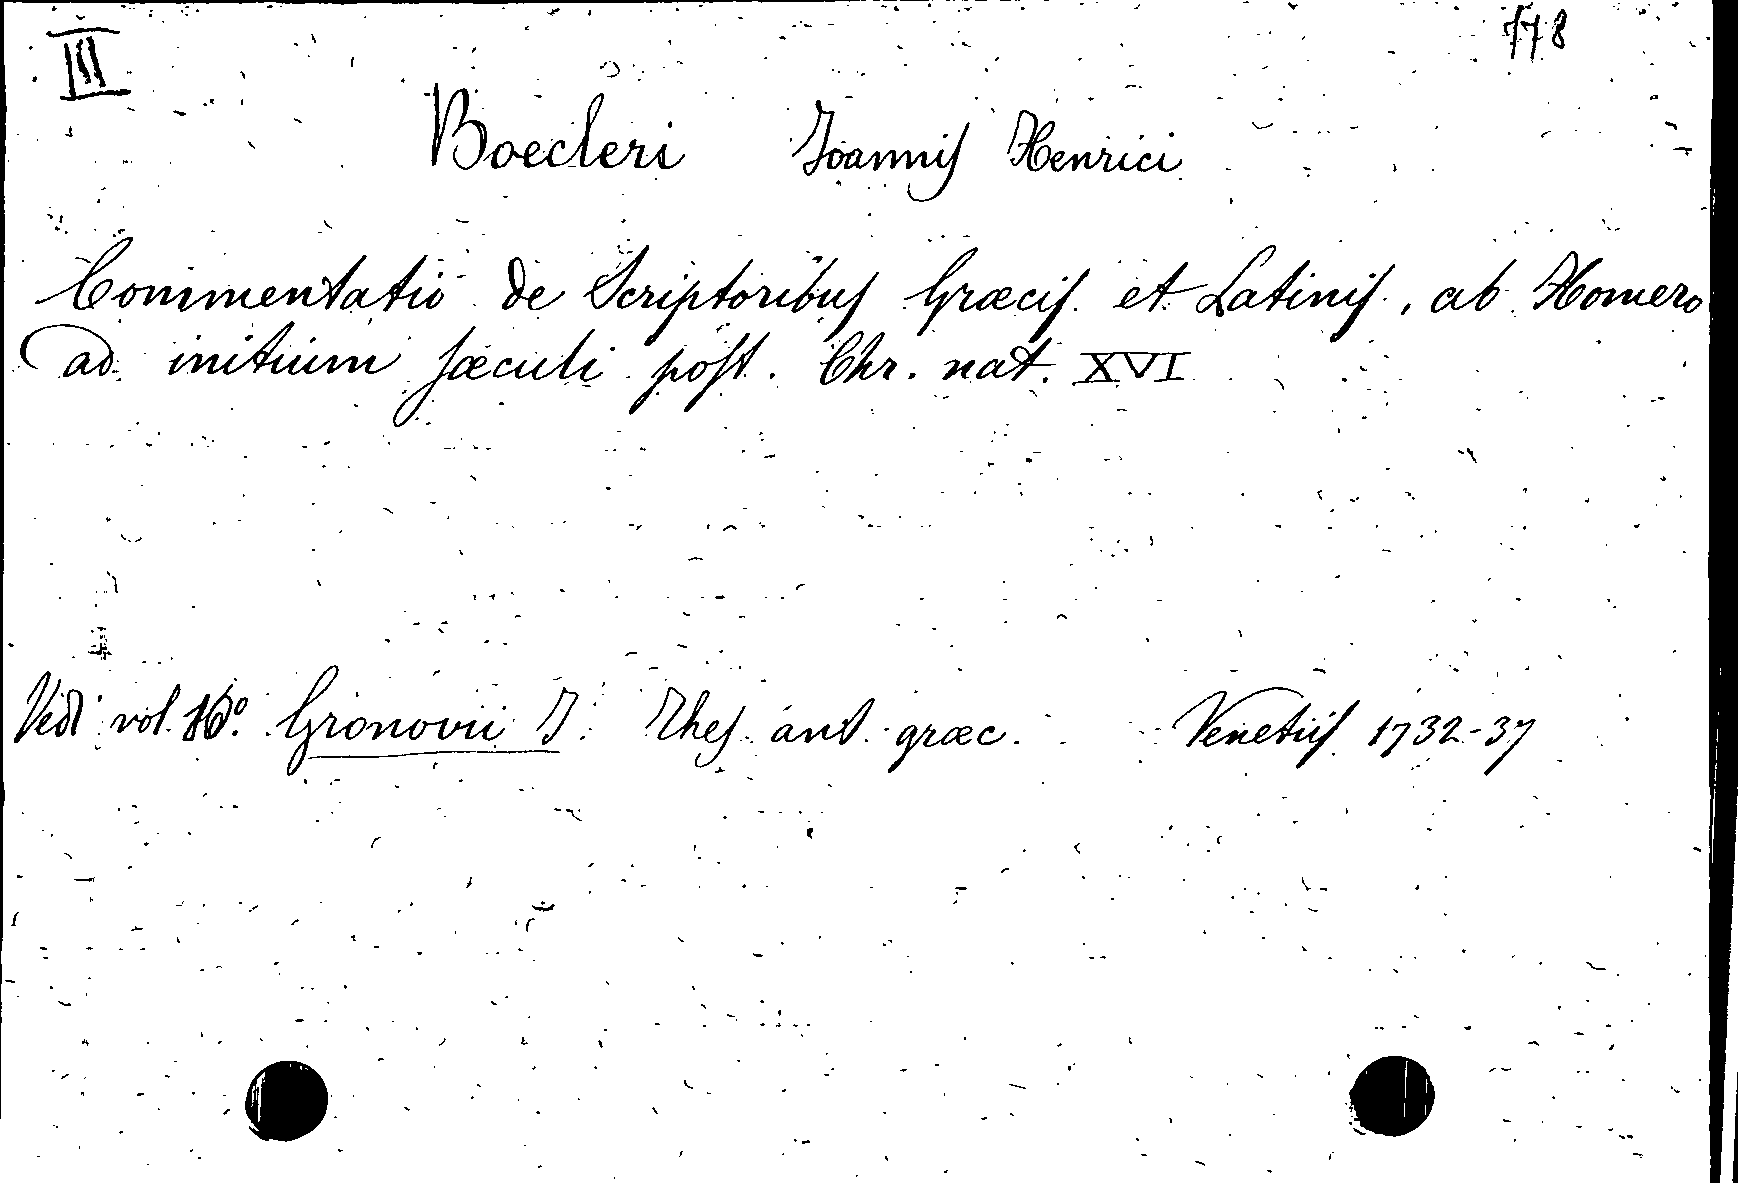 III
778
Boecleri Joannis Henrici
Commentatio de Scriptoribus Græcis et Latinis, ab Homero
ad initium sæculi post. Chr. nat. XVI
Vedi vol. 10º. Gronovii J. Thes. ant. græc. Venetiis 1732-37